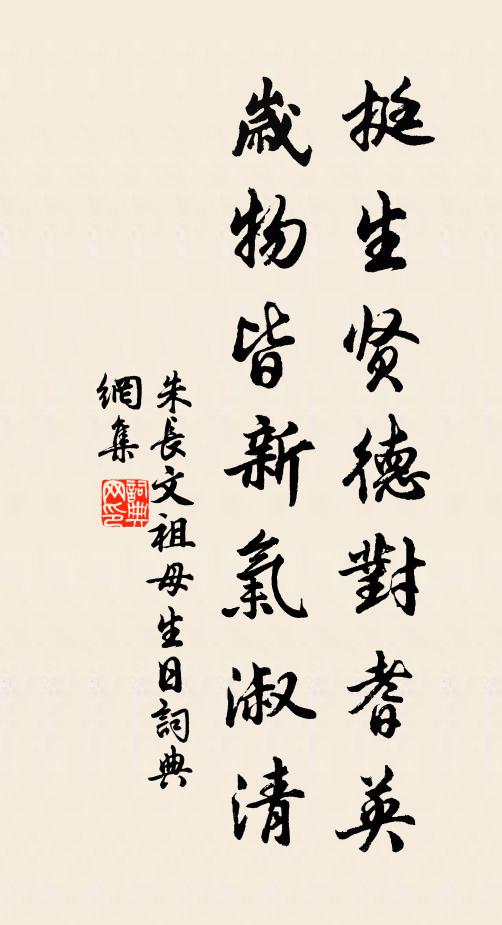 挺生贤德對耆英
歲物皆新氣淑清
朱長文祖母生日詞典
網集
詞典网印